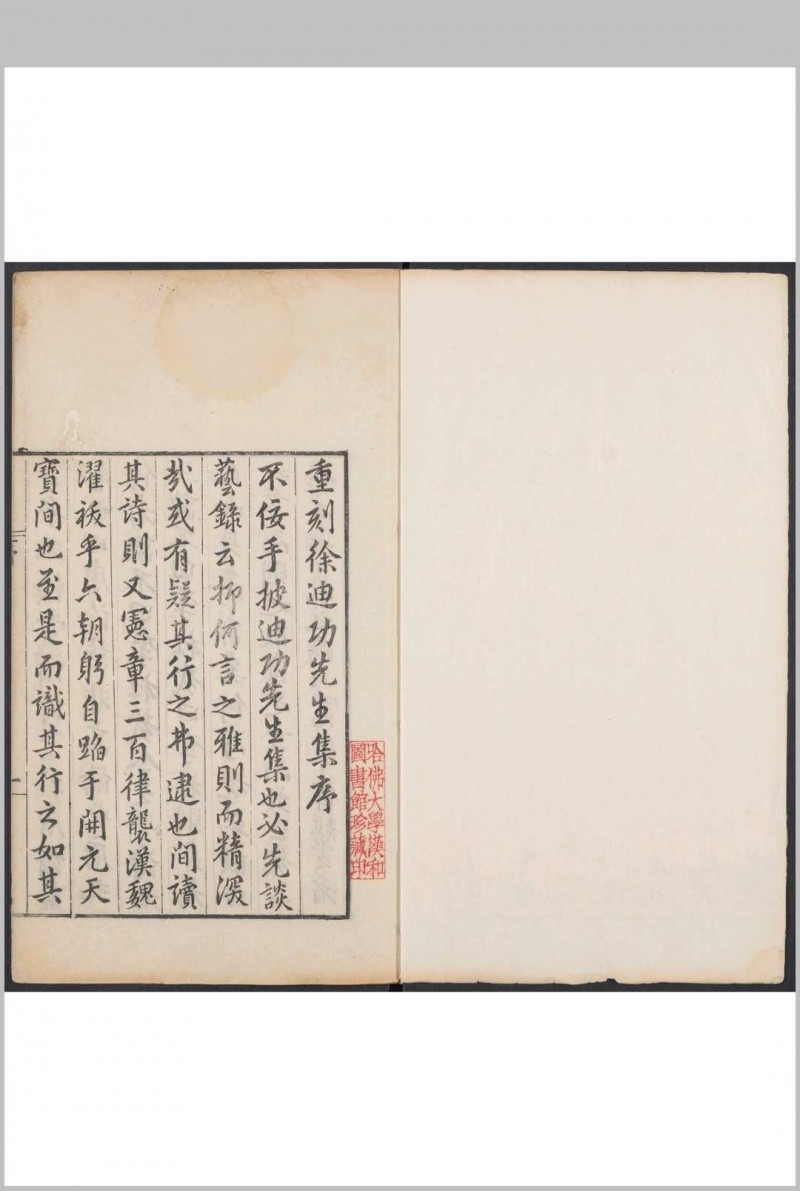 重刻徐迪功先生集序
不佞手披迪功先生集也必先談
藝錄云抑何言之雅則而精深
哉或有疑其行之弗逮也間讀
其詩則又憲章三百律襲漢魏
濯祓乎六朝躬自蹈于開元天
寶間也至是而識其行云如其
哈佛大學漢和
圖書館珍藏印